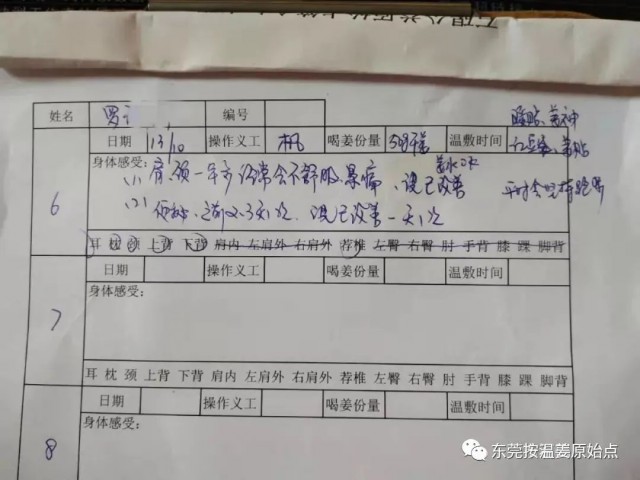 姓名 罗 编号
日期 13/10 操作义工 枫 喝姜份量 温敷时间
身体感受:
(1) 肩颈一年多 经常会不舒服,晕痛,现已改善
(2) 便秘,之前2-3天1次,现已改善一天1次
6
耳 枕 颈 上背 下背 肩内 左肩外 右肩外 荐椎 左臀 右臀 肘 手背 膝 踝 脚背
日期 操作义工 喝姜份量 温敷时间
身体感受:
7
耳 枕 颈 上背 下背 肩内 左肩外 右肩外 荐椎 左臀 右臀 肘 手背 膝 踝 脚背
日期 操作义工 喝姜份量 温敷时间
身体感受:
8
东莞按温姜原始点